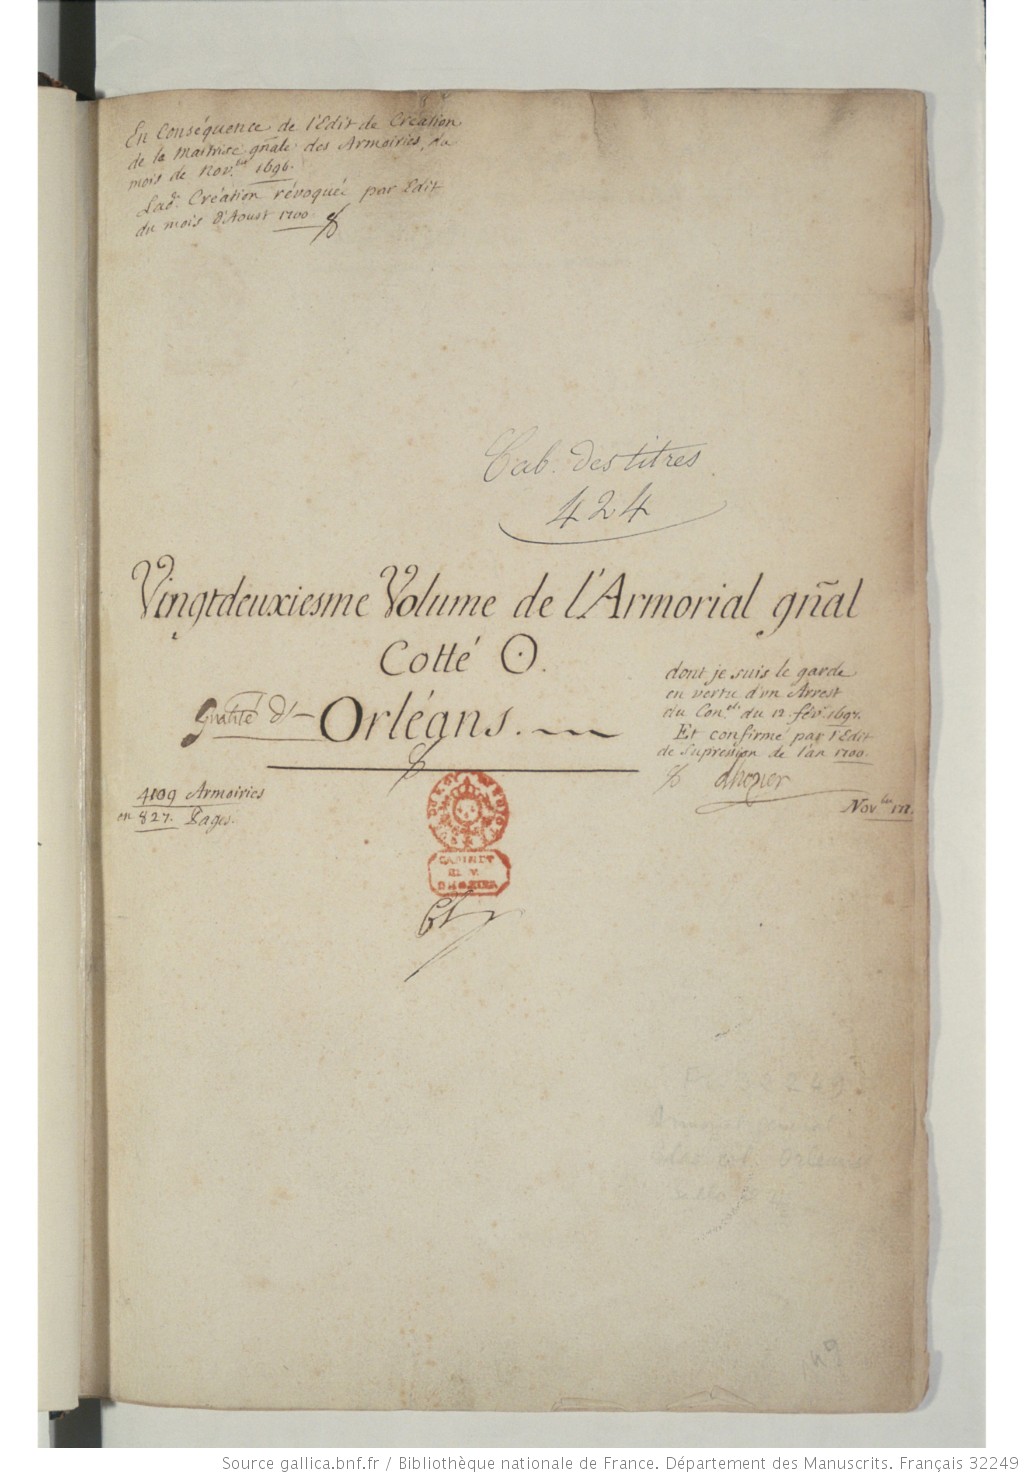 En Conséquence de l'Edit de Création
de la Maitrise gñale des Armoiries, du
mois de Nov.bre 1696.
Lad. Création révoquée par Edit
du mois d'Aoust 1700.
Cab. des titres
424
Vingtdeuxiesme Volume de l'Armorial gñal
Cotté O.
gñalité d'Orléans.
dont je suis le garde
en vertu d'un Arrest
du Con.eil du 12. fév.r 1697.
Et confirmé par l'Edit
de Supression de l'an 1700.
dhozier
Nov.bre
4109 Armoiries
en 827. Pages.
CABINET
DHOZIER
Source gallica.bnf.fr / Bibliothèque nationale de France. Département des Manuscrits. Français 32249